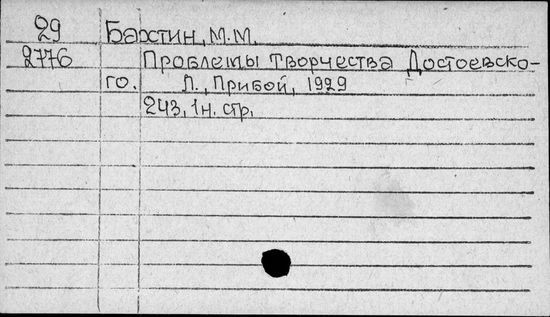 29 Бахтин, М.М.
2776 Проблемы творчества Достоевско-
го. Л., Прибой, 1929
243, 1н. стр.